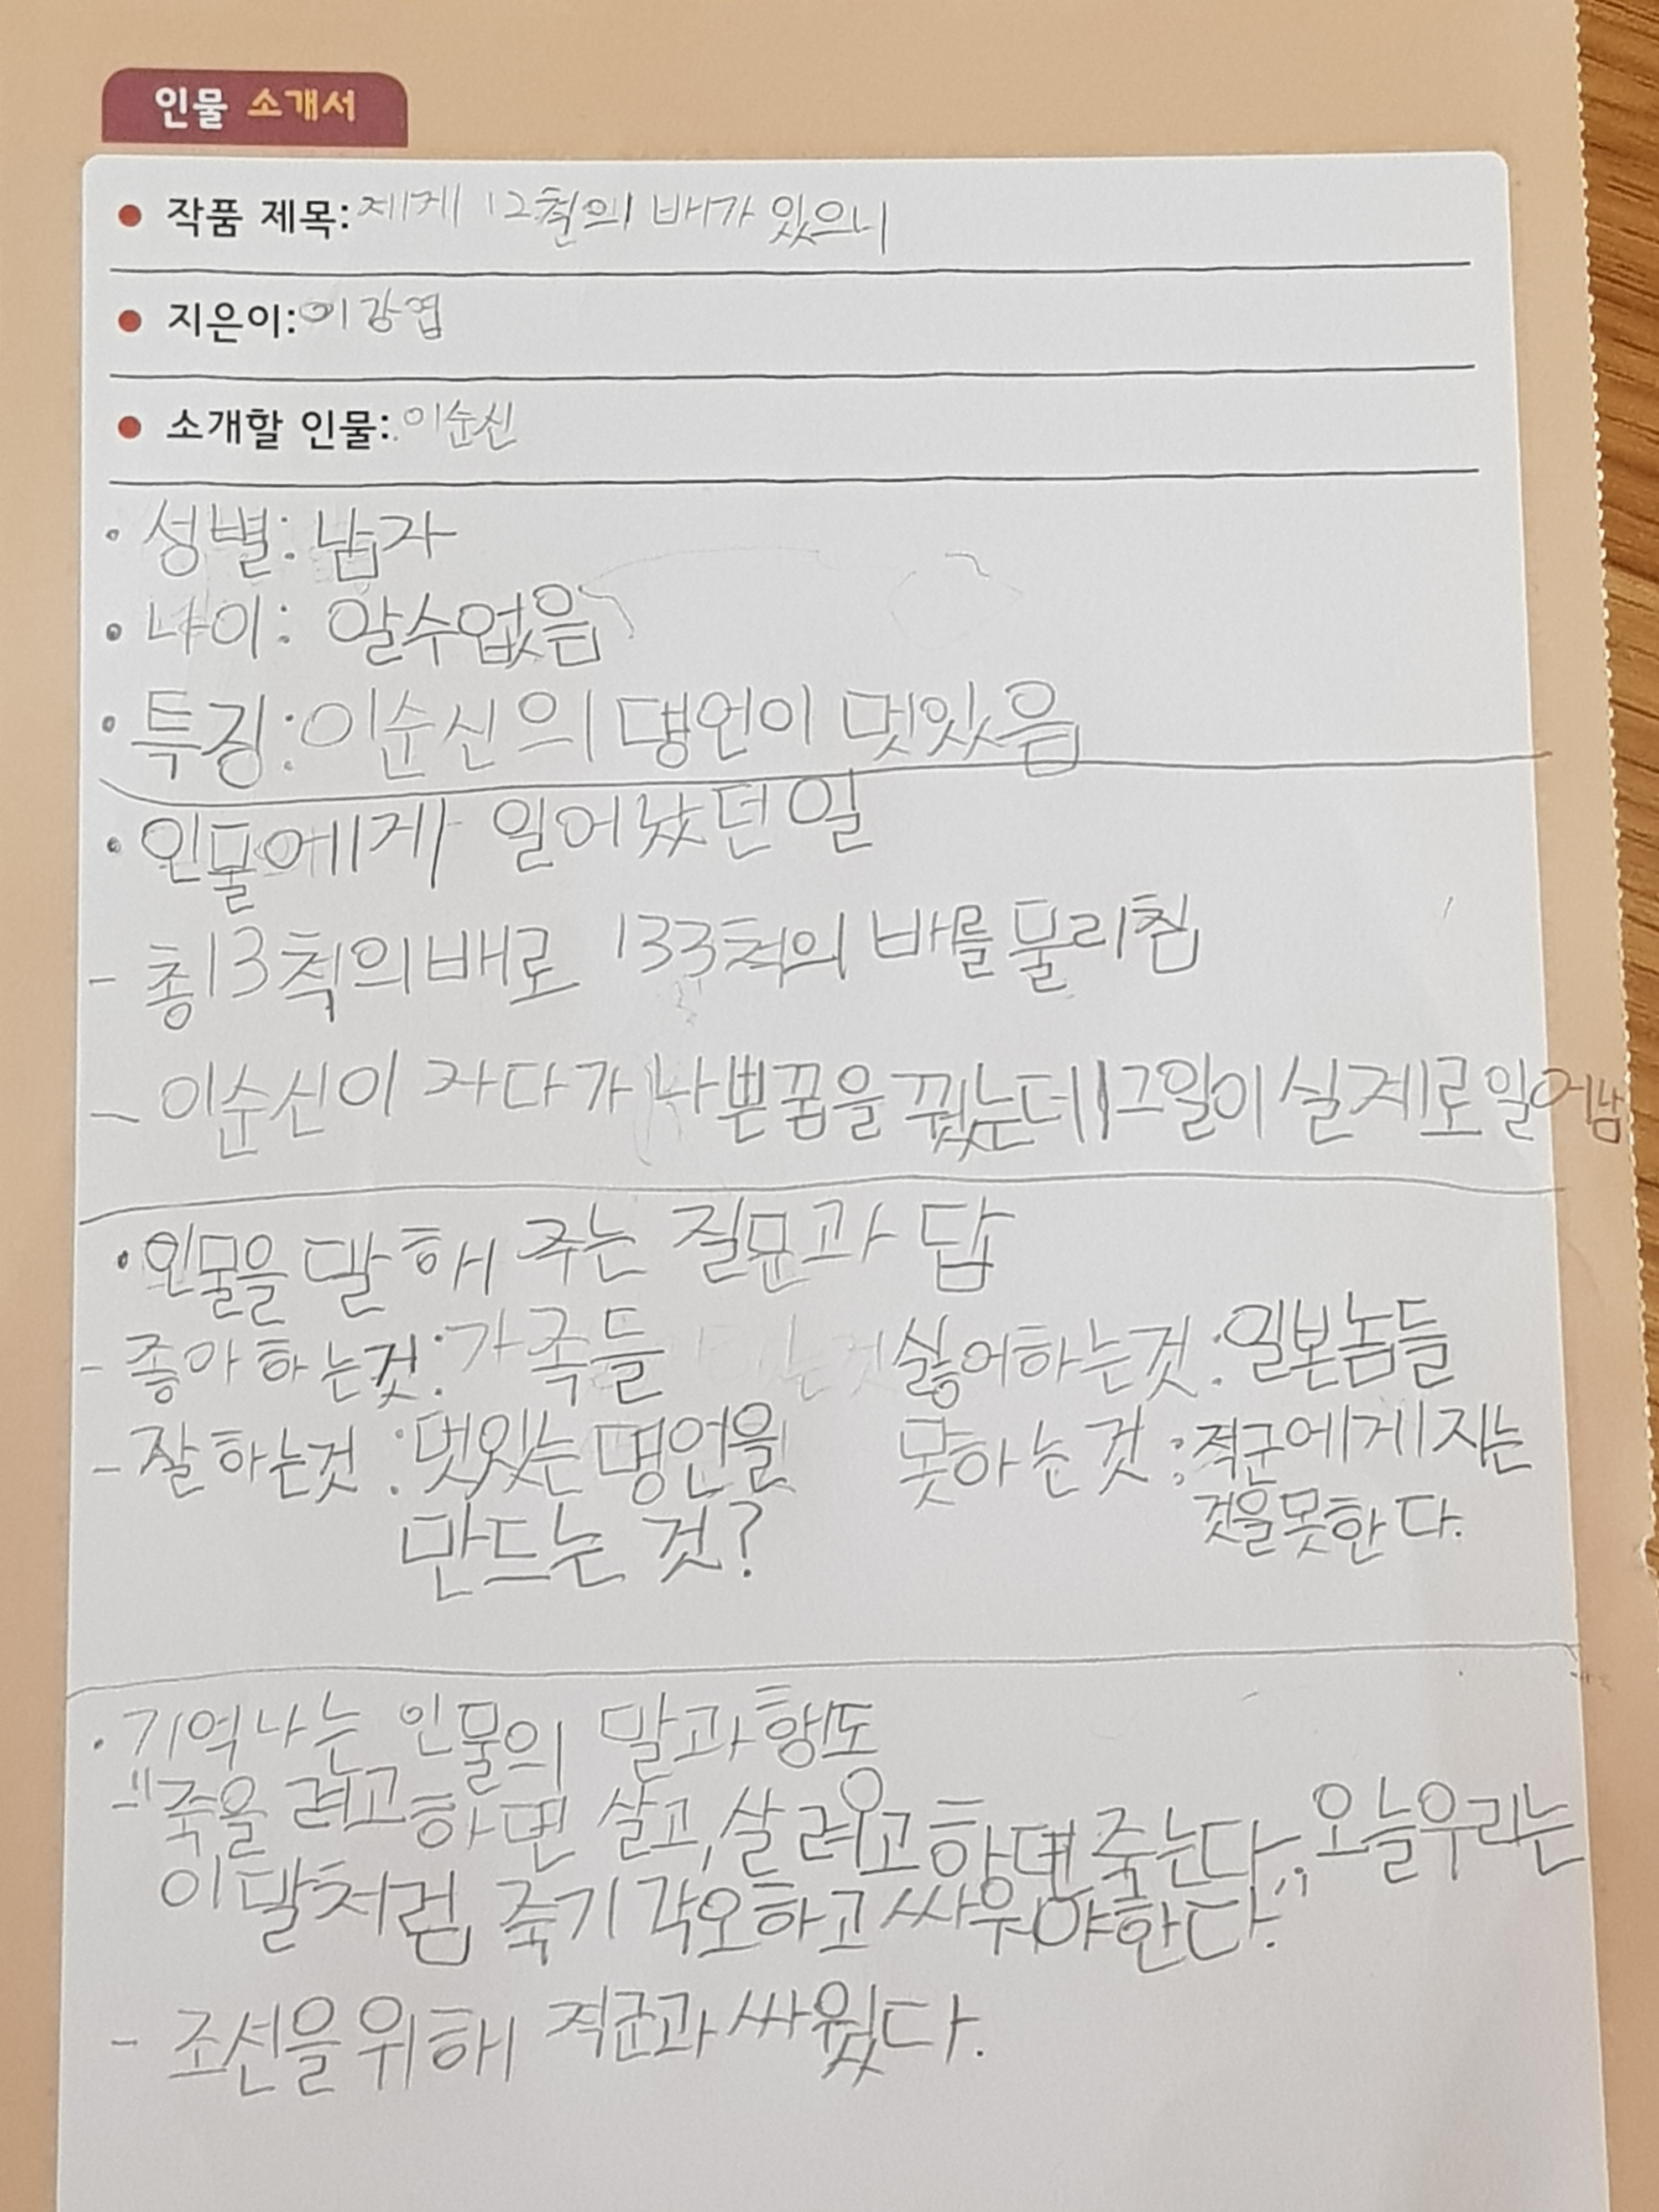 인물 소개서
• 작품 제목: 제게 12척의 배가 있으니
• 지은이: 이강엽
• 소개할 인물: 이순신
• 성별: 남자
• 나이: 알수없음
• 특징: 이순신의 명언이 멋있음
• 인물에게 일어났던 일
- 총13척의배로 133척의 배를 물리침
- 이순신이 자다가 나쁜꿈을 꿨는데 그일이 실제로일어남
• 인물을 말해 주는 질문과 답
- 좋아하는것: 가족들 싫어하는것: 일본놈들
- 잘하는것: 멋있는 명언을 못하는것: 적군에게지는
만드는 것? 것을못한다.
• 기억나는 인물의 말과행도
- "죽을려고하면 살고, 살려고하면 죽는다." 오늘우리는
이말처럼 죽기각오하고 싸워야한다.
- 조선을위해 적군과싸웠다.